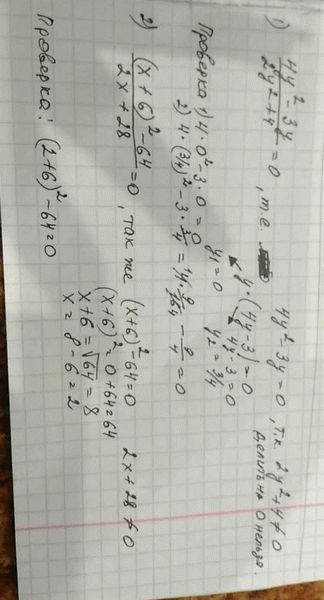 1) (4y² - 3y)/(2y² + 4) = 0, т.е. 4y² - 3y = 0, т.к. 2y² + 4 ≠ 0
делить на 0 нельзя.
y · (4y - 3) = 0
y₁ = 0 4y - 3 = 0
y₂ = 3/4
Проверка 1) 4 · 0² - 3 · 0 = 0
2) 4 · (3/4)² - 3 · 3/4 = 4 · 9/16 - 9/4 = 0
2) ((x + 6)² - 64)/(2x + 28) = 0, так же (x + 6)² - 64 = 0 2x + 28 ≠ 0
(x + 6)² = 0 + 64 = 64
x + 6 = √64 = 8
x = 8 - 6 = 2
Проверка: (2 + 6)² - 64 = 0